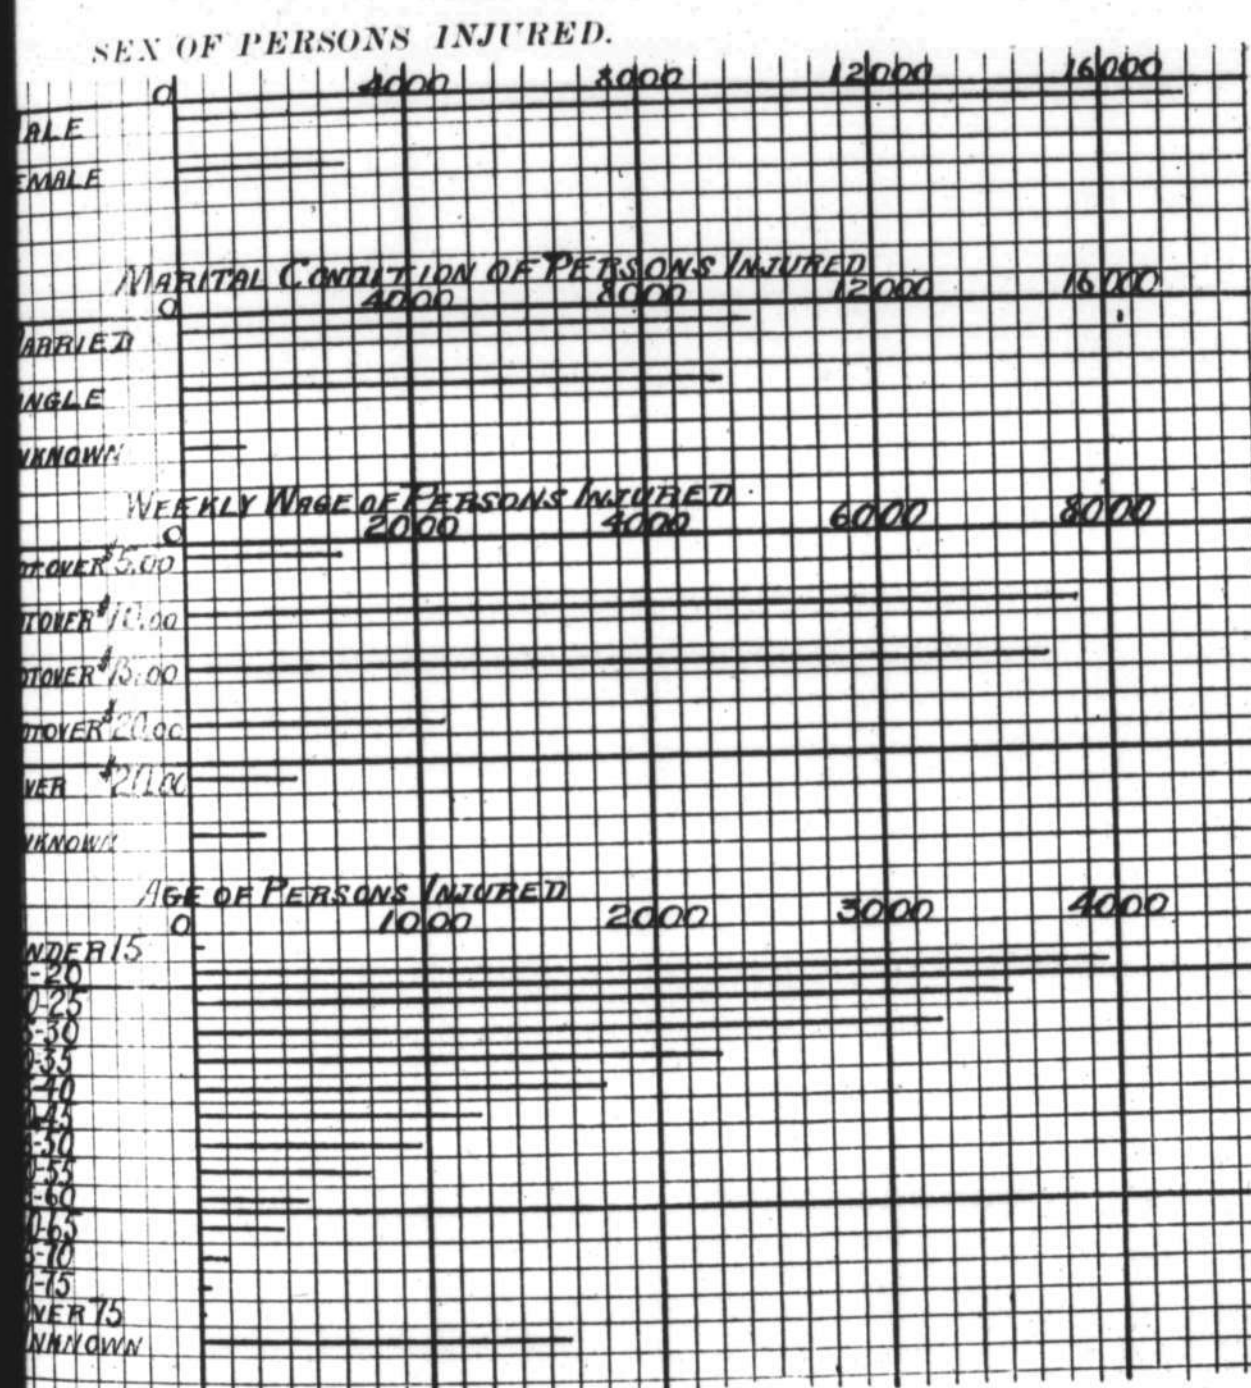 SEX OF PERSONS INJURED.
0 4000 8000 12000 16000
ALE
EMALE
MARITAL CONDITION OF PERSONS INJURED
0 4000 8000 12000 16000
ARRIED
INGLE
NKNOWN
WEEKLY WAGE OF PERSONS INJURED.
0 2000 4000 6000 8000
OT OVER $5.00
OT OVER $10.00
OT OVER $15.00
OT OVER $20.00
VER $20.00
NKNOWN
AGE OF PERSONS INJURED
0 1000 2000 3000 4000
NDER 15
-20
0-25
5-30
0-35
5-40
0-45
5-50
0-55
5-60
0-65
5-70
0-75
VER 75
NKNOWN